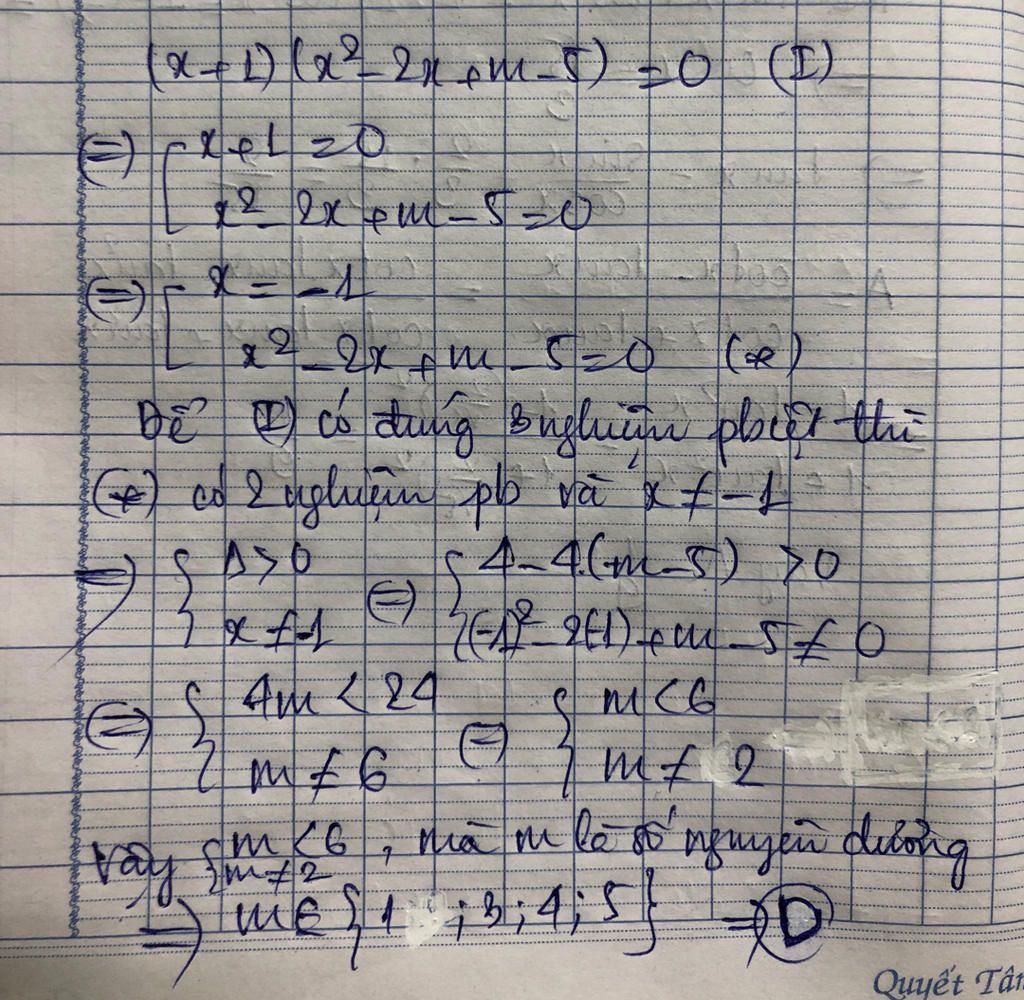 (x+1)(x²-2x+m-5) =0 (I)
(=) [ x+1 =0
x²-2x+m-5=0
(=) [ x = -1
x²-2x+m-5=0 (*)
Để (I) có đúng 3 nghiệm pbiệt thì
(*) có 2 nghiệm pb và x ≠ -1
=) { Δ>0 (=) { 4-4.(m-5) >0
x ≠ -1 (-1)²-2(-1)+m-5 ≠ 0
(=) { 4m < 24 (=) { m<6
m ≠ 6 m ≠ 2
Vậy { m <6 , mà m là số nguyên dương
m ≠ 2
=) m ∈ {1 ; 3 ; 4 ; 5} =) D
Quyết Tâm